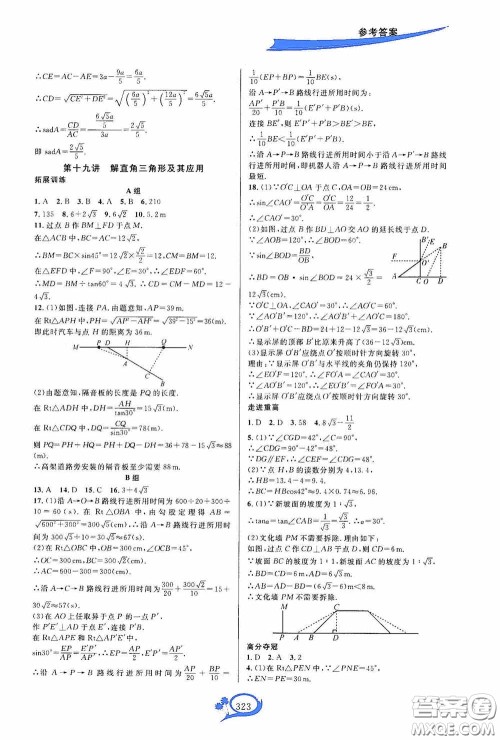 参考答案
∴CE=AC-AE=3a-9a/5=6a/5.
∴CD=√(CE²+DE²)=√((6a/5)²+(12a/5)²)=6√5a/5.
∴sadA=CD/AC=(6√5a/5)/3a=2√5/5.
即 sadA=2√5/5.
第十九讲 解直角三角形及其应用
拓展训练
A组
1. A 2. B 3. A 4. A 5. B 6. 210
7. 135 8. 6+2√3 9. 6√2 10. 5.2 m
11. 过点 B 作 BM⊥FD 于点 M.
∴BM=BC×sin45°=12√2×√2/2=12,CM=BM=12.
在△EFD 中,∠F=90°,∠E=30°,∴∠EDF=60°.
∴MD=BM÷tan60°=4√3.∴CD=CM-MD=12-4√3.
12. (1)如图,连接 PA,由题意知,AP=39 m.
在 Rt△APH 中,PH=√(AP²-AH²)=√(39²-15²)=36(m).
即此时汽车与点 H 的距离为 36 m.
M P H Q N
A
B
C
(2)由题意知,隔音板的长度是 PQ 的长度.
在 Rt△ADH 中,DH=AH/tan30°=15√3(m).
∴高架道路旁安装的隔音板至少需要 88 m.
B组
13. A 14. D 15. C 16. 3+4√3
17. (1)沿 A→O→B 路线行进所用时间为 600÷20+300÷
10=60(s).在 Rt△OBA 中,由勾股定理得 AB=
(2)在 Rt△OBC 中,OB=300 cm,∠BCO=45°,
∴OC=300 cm,BC=300√2 cm.
∴AC=600-300=300(cm).
∴沿 A→C→B 路线行进所用时间为 300/20+300√2/10=15+
30√2≈57(s).
(3)在 AO 上任取异于点 P 的一点 P′,
在 Rt△APE 和 Rt△AP′E′ 中,
sin30°=EP/AP=E′P′/AP′=1/2.
∴EP=AP/2,E′P′=AP′/2.
∴沿 A→P→B 路线行进所用时间为 AP/20+BP/10=
1/10(EP+BP)=1/10BE(s).
沿 A→P′→B 路线行进所用时间为:
AP′/20+P′B/10=1/10(E′P′+P′B)(s).
连接 BE′,则 E′P′+P′B>BE′>BE.
∴1/10BE<1/10(E′P′+P′B).
∴沿 A→P→B 路线行进所用时间小于沿 A→P′→B 路线
行进所用时间,即机器人沿 A→P→B 路线行进所用时间
最短.
18. (1)∵O′C⊥OA 于点 C,OA=OB=24 cm,
∴∠CAO′=30°.
(2)如图,过点 B 作 BD⊥AO 交 AO 的延长线于点 D.
∵sin∠BOD=BD/OB,
∴BD=OB·sin∠BOD=24×√3/2=
12√3(cm).
∵O′C⊥OA,∠CAO′=30°,
∴∠AO′C=60°.
∵∠AO′B′=120°,∴∠AO′B′+∠AO′C=180°.
∴O′B′+O′C-BD=24+12-12√3=(36-12√3)(cm).
∴显示屏的顶部 B′比原来升高了(36-12√3)cm.
(3)显示屏 O′B′应绕点 O′按顺时针方向旋转 30°.
理由:∵显示屏 O′B′与水平线的夹角仍保持 120°,
∴∠EO′F=120°.
∴∠FO′A=∠CAO′=30°.
∵∠AO′B′=120°,∴∠EO′B′=∠FO′A=30°.
∴显示屏 O′B′应绕点 O′按顺时针方向旋转 30°.
走进重高
1. D 2. D 3. 58 4. 8√3-11/2
5. (1)∵∠CGD=42°,∠C=90°,
∴∠CDG=90°-42°=48°.
∵DG∥EF,∴∠CEF=∠CDG=48°.
(2)∵点 H,B 的读数分别为 4,13.4,
∴HB=13.4-4=9.4.
∴BC=HBcos42°≈9.4×0.74≈6.96.
6. (1)∵新坡面的坡度为 1:√3,
∴tanα=tan∠CAB=1/√3=√3/3.∴α=30°.
(2)文化墙 PM 不需要拆除.理由如下:
如图,过点 C 作 CD⊥AB 于点 D,则 CD=6 m.
∵坡面 BC 的坡度为 1:1,新坡面的坡度为 1:√3,
∴BD=CD=6 m,AD=6√3 m.
∴AB=AD-BD=(6√3-6)m<8 m.
∴文化墙 PM 不需要拆除.
M C
P A B D
高分夺冠
1. D 2. A 3. 2
4. (1)在 Rt△PEN 中,∵∠PEN=45°,
∴EN=PE=30 m.
323